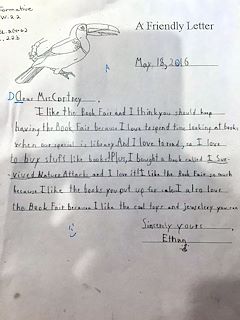 formative
W.2.2
A Friendly Letter
May 18, 2016
Dear Mrs. Cortney,
I like the Book Fair and I think you should keep
having the Book Fair because I love to spend time looking at books
when our special is library. And I love to read, so I love
to buy stuff like books. Plus, I bought a book called I Sur-
vived Nature Attack and I love it! I like the Book Fair so much
because I like the books you put up for sale. I also love
the Book Fair because I like the cool toys and jewelery you can
Sincerly yours,
Ethan